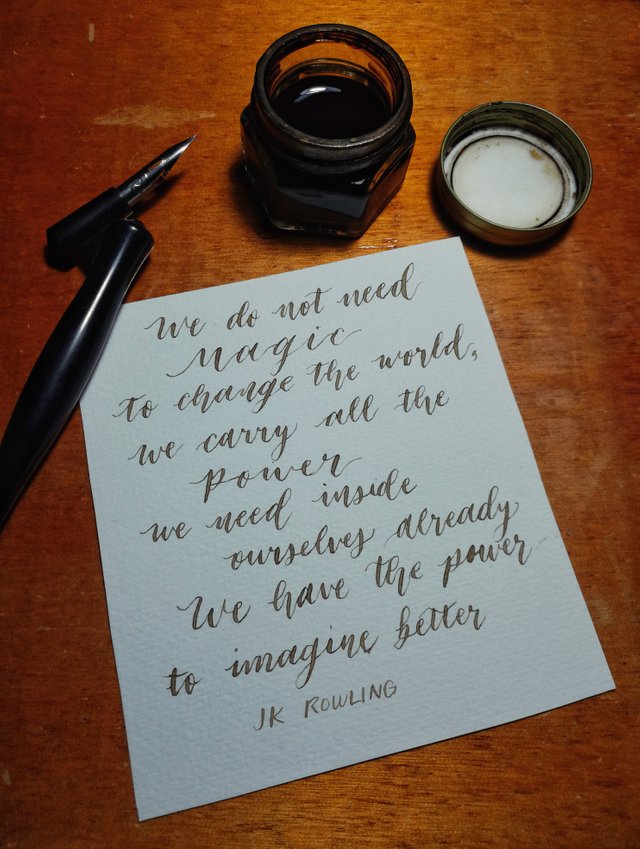 We do not need
Magic
to change the world,
we carry all the
power
we need inside
ourselves already
We have the power
to imagine better
JK ROWLING